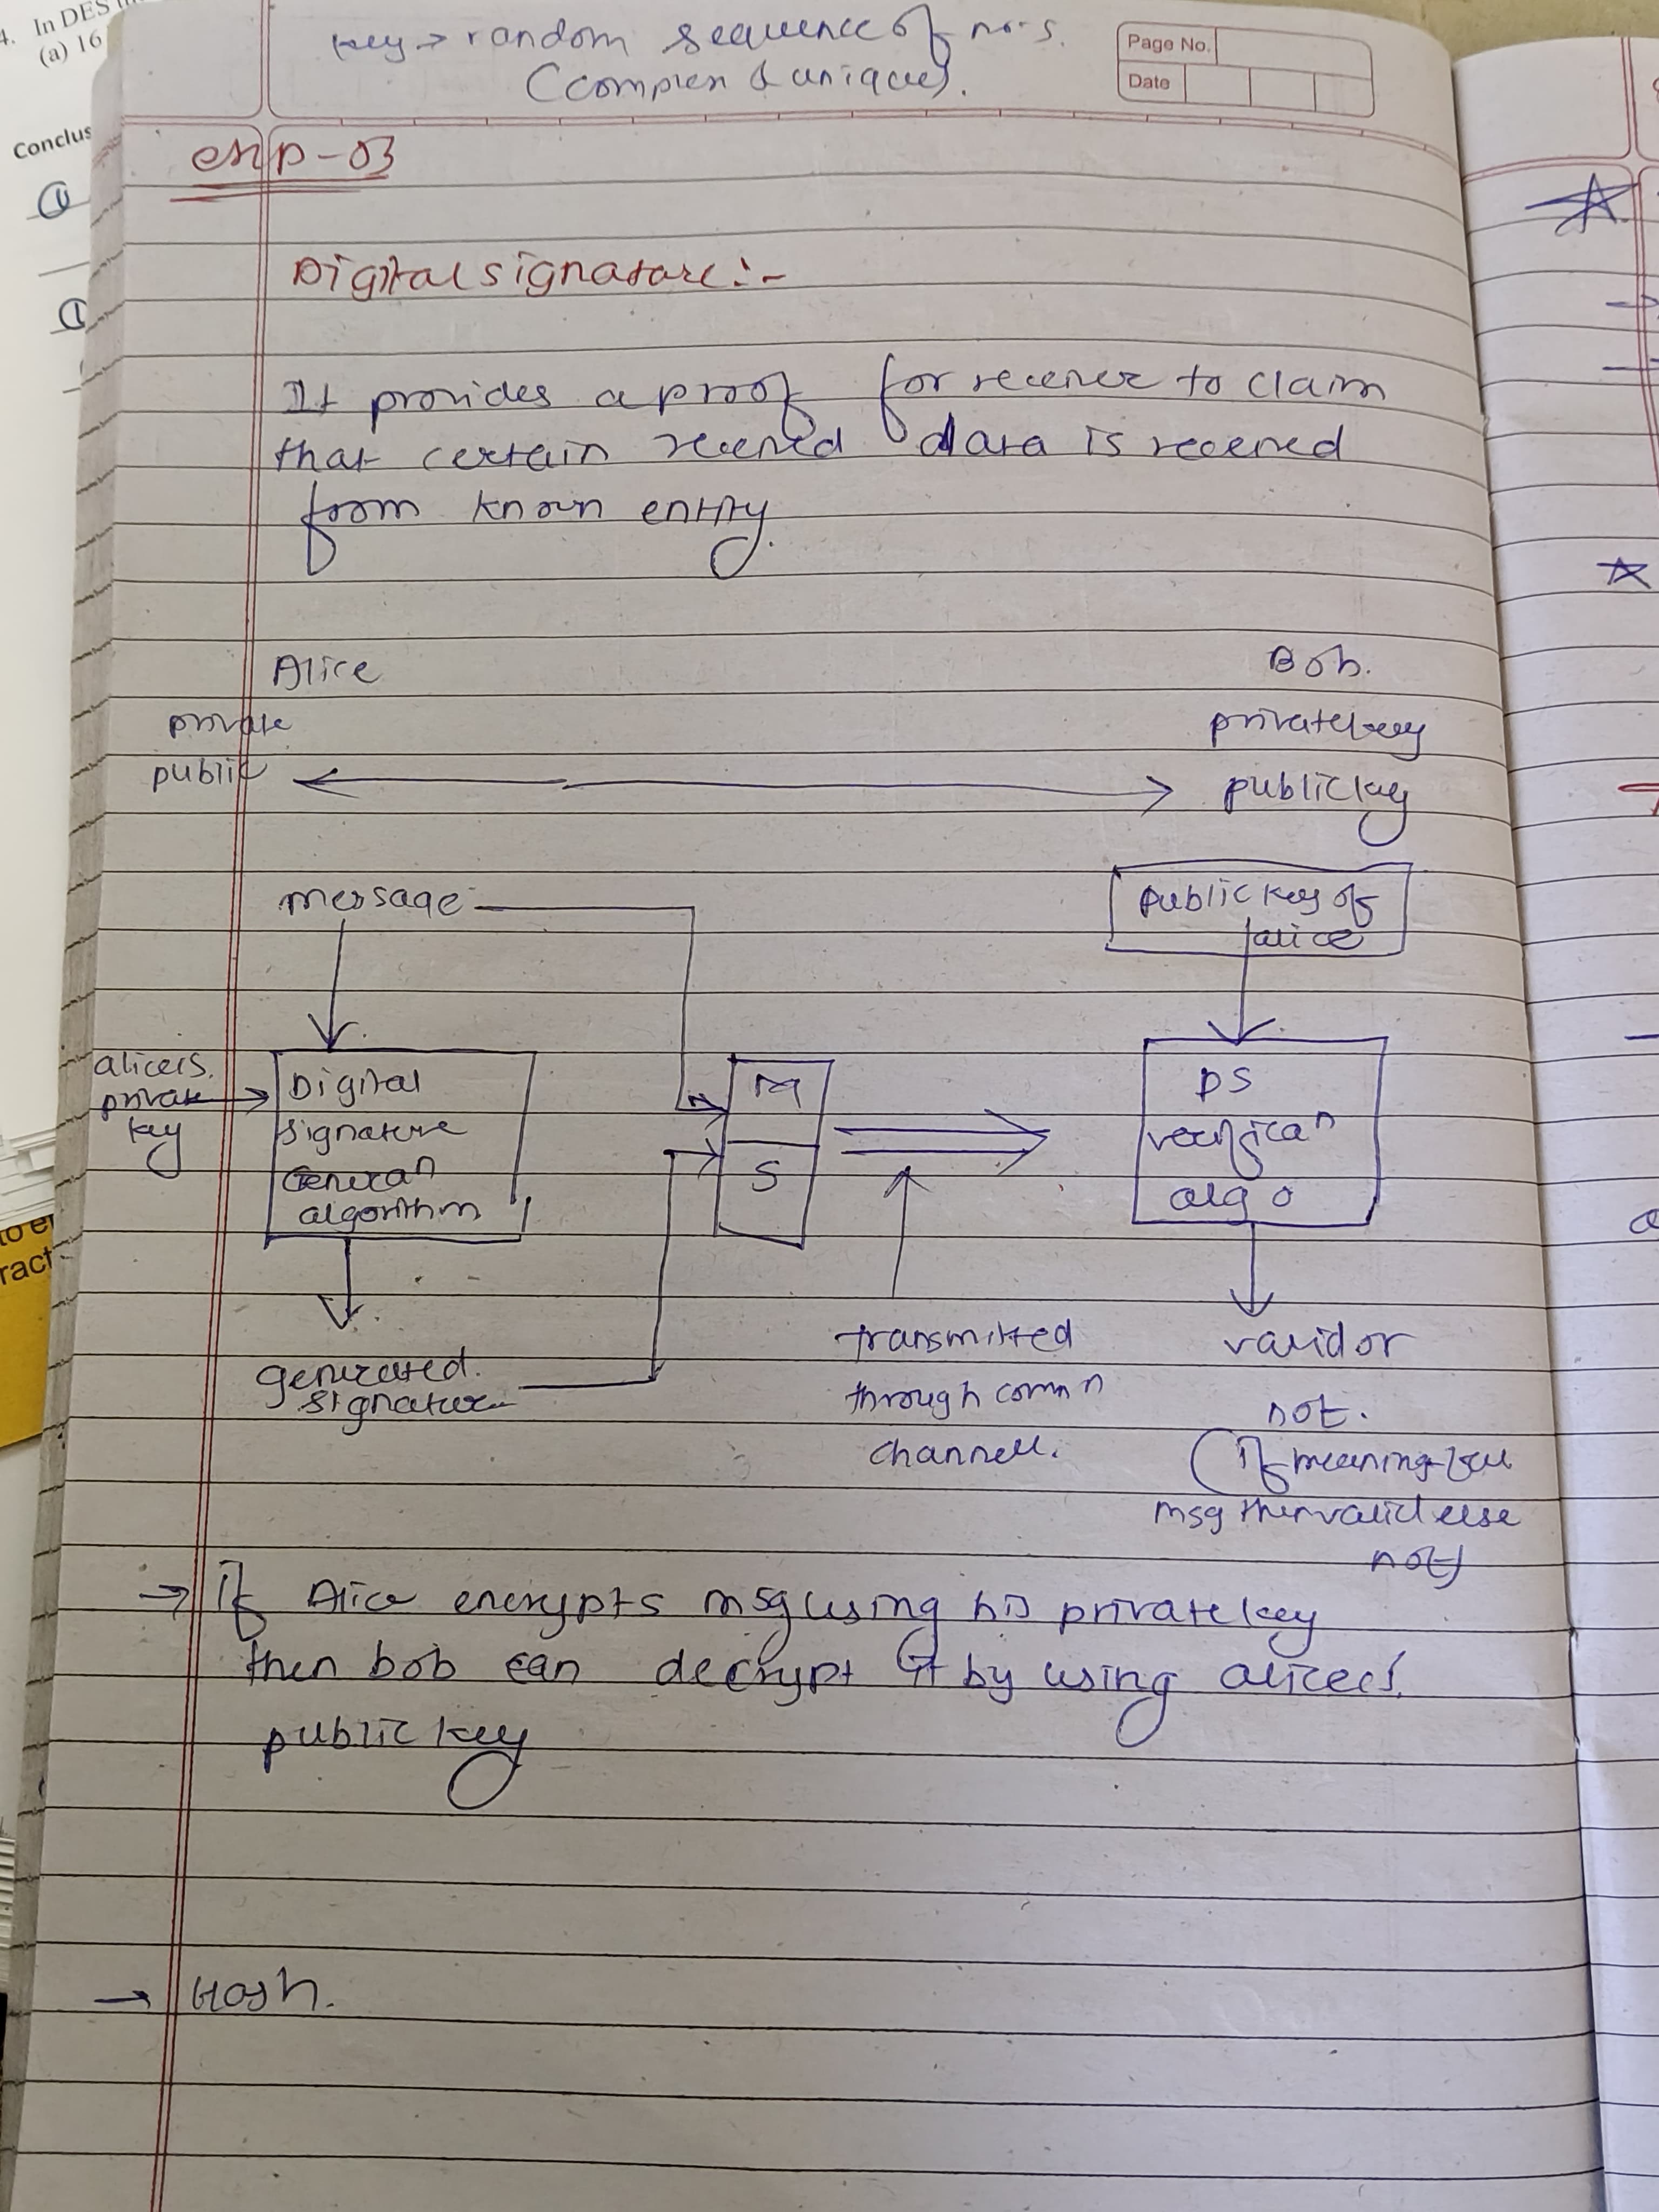 4. In DES
(a) 16
Conclus
key → random sequence of no.s.
(complex & unique).
Page No.
Date
exp-03
Digital signature :-
It provides a proof for receiver to claim
that certain received data is received
from known entity.
Alice
Bob.
private
private key
public
public key
message
Public key of
alice
alice's
private
key
Digital
signature
Generaⁿ
algorithm
M
S
DS
verificaⁿ
algo
generated.
signature
transmitted
through commⁿ
channel.
valid or
not.
(if meaningful
msg then valid else
not)
→ if Alice encrypts msg using his private key
then bob can decrypt it by using alice's
public key
→ Hash.
to e
ract